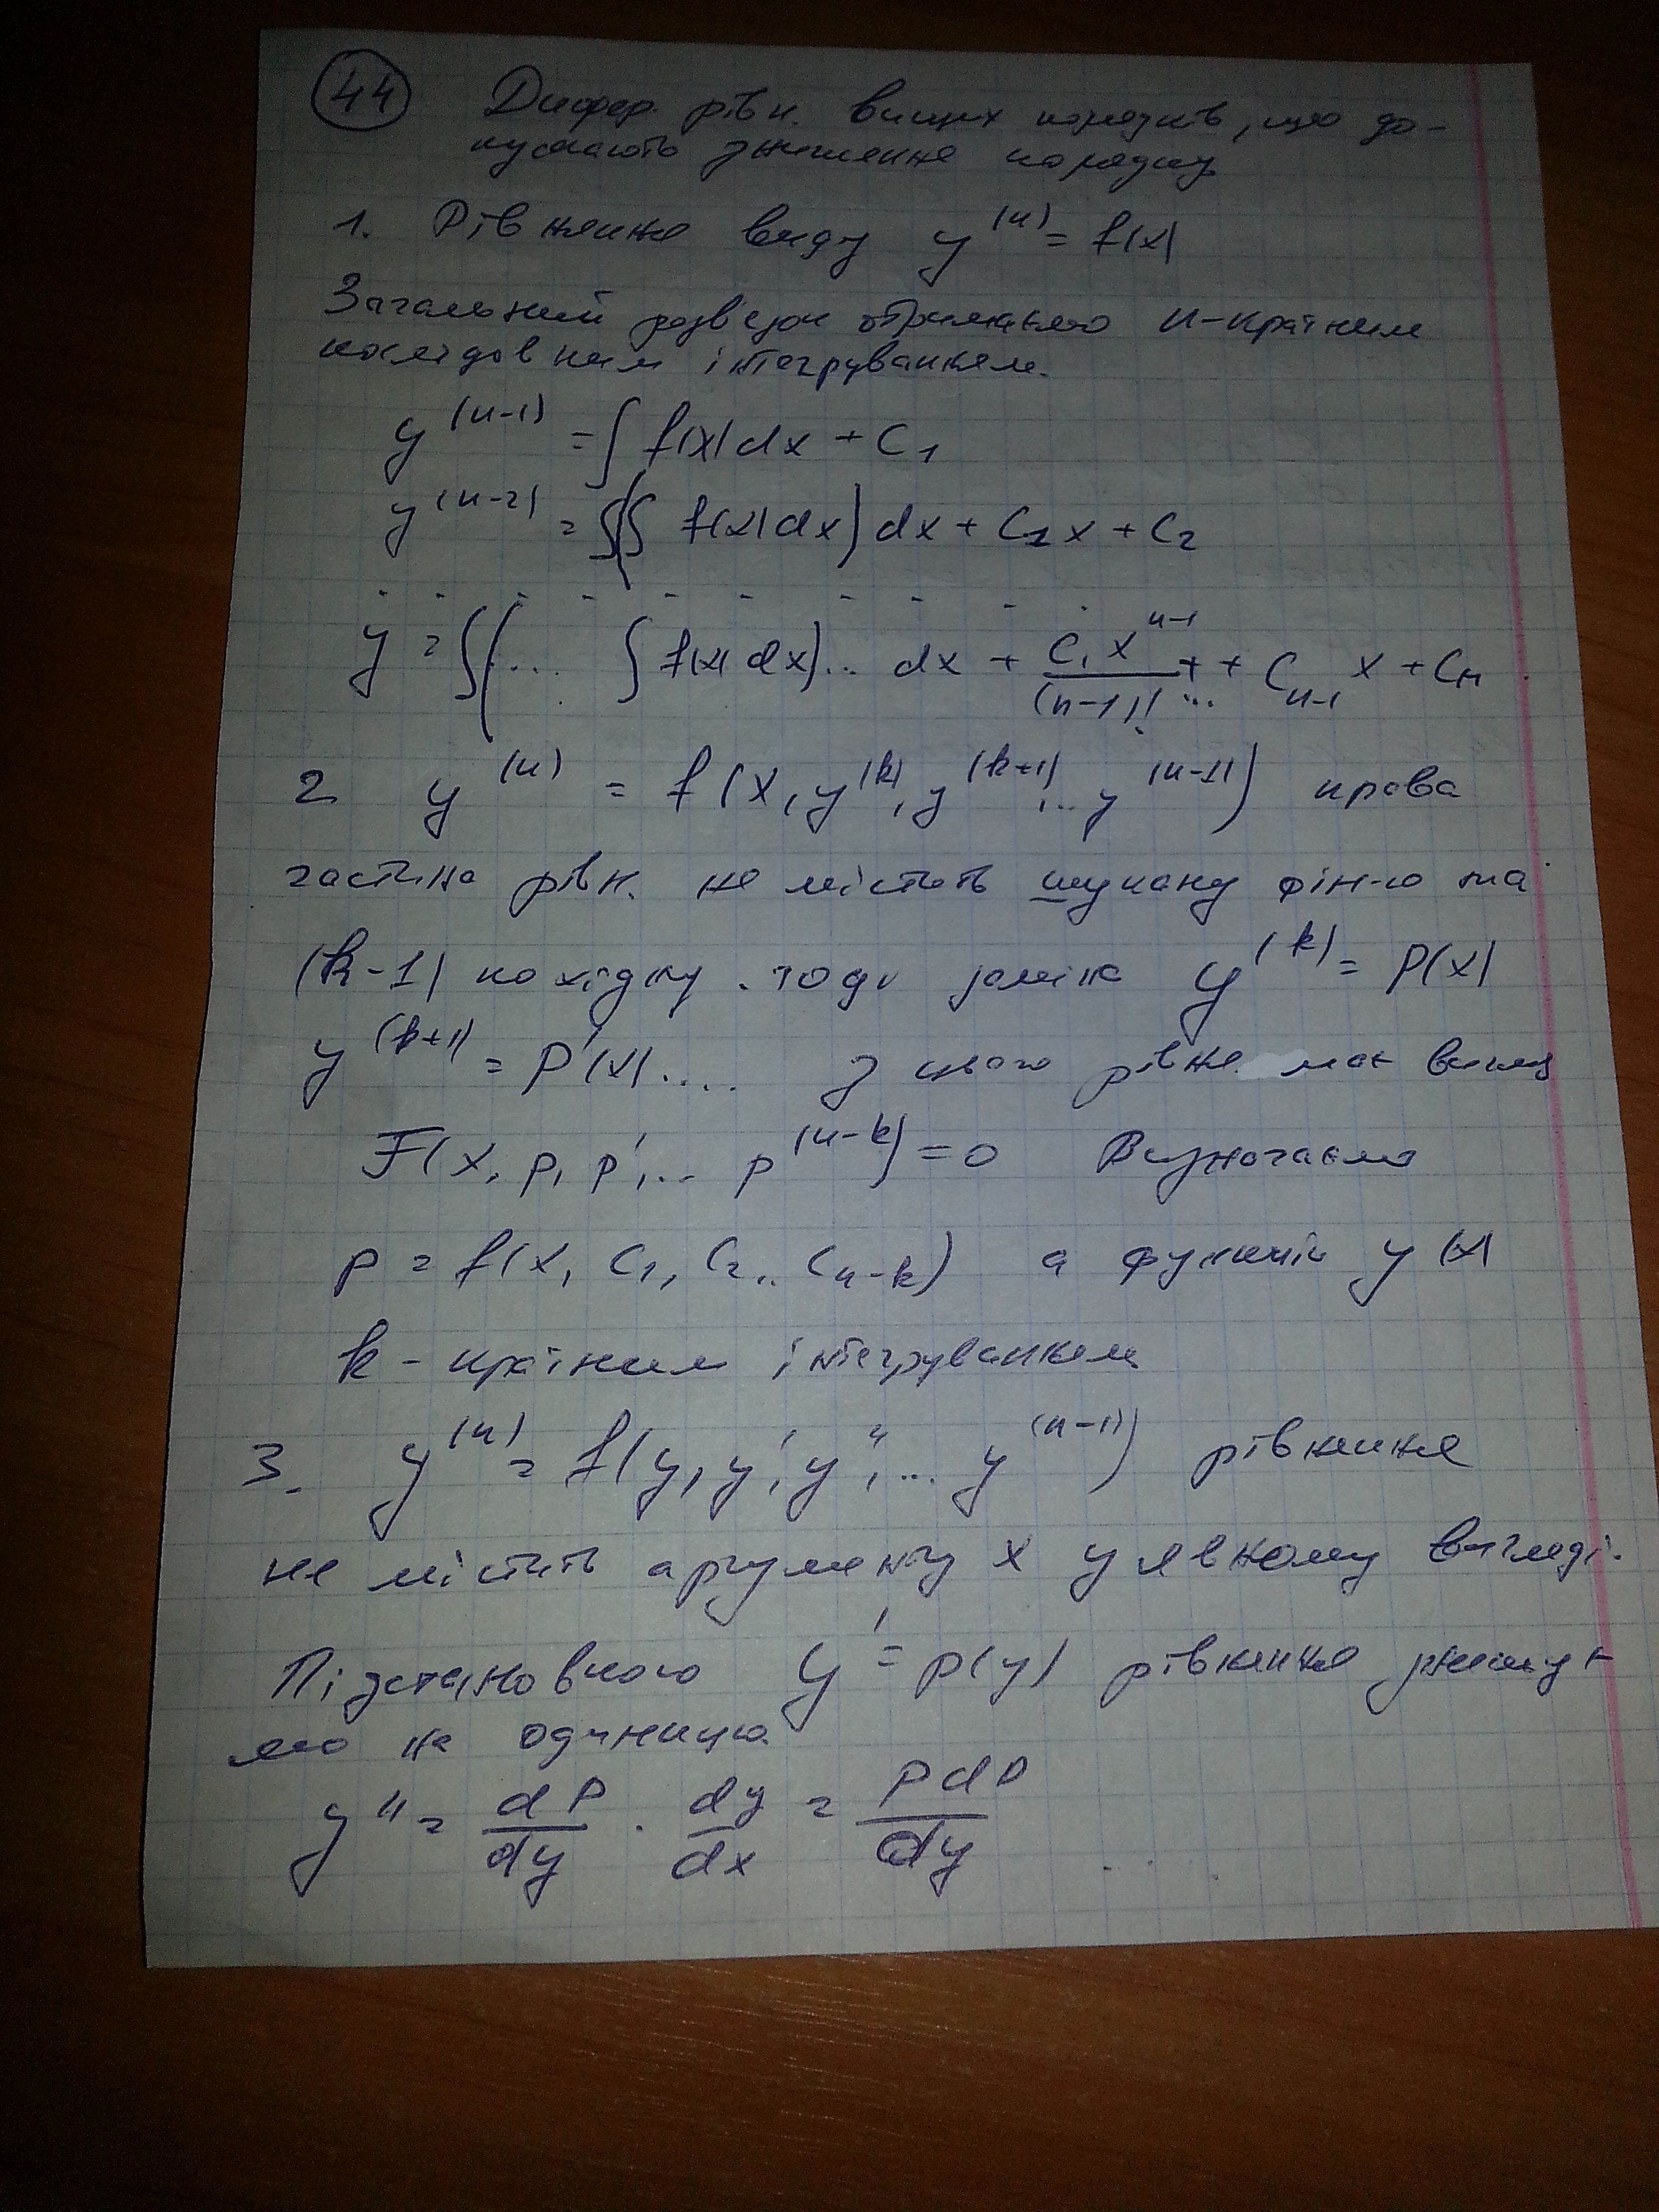 44 Дифер. рівн. вищих порядків, що до-
пускають зниження порядку
1. Рівняння виду y^(n) = f(x)
Загальний розв'язок отримаємо n-кратним
послідовним інтегруванням.
y^(n-1) = ∫ f(x)dx + C₁
y^(n-2) = ∫(∫ f(x)dx)dx + C₁x + C₂
. . . . . . . . . .
y = ∫(... ∫ f(x)dx)... dx + C₁x^(n-1)/(n-1)! + ... + C_(n-1) x + C_n
2 y^(n) = f(x, y^(k), y^(k+1), ... y^(n-1)) права
частина рівн. не містить шукану фін-ю та
(k-1) похідну. тоді заміна y^(k) = P(x)
y^(k+1) = P'(x) .... З цього рівня. має вигляд
F(x, p, p', ... p^(n-k)) = 0 Визначаємо
p = f(x, C₁, C₂, .. C_(n-k)) а функцію y(x)
k-кратним інтегруванням
3. y^(n) = f(y, y', y'', ... y^(n-1)) рівняння
не містить аргументу x у явному вигляді.
Підстановкою y' = p(y) рівняння знижує-
мо на одиницю.
y'' = dP/dy · dy/dx = PdP/dy